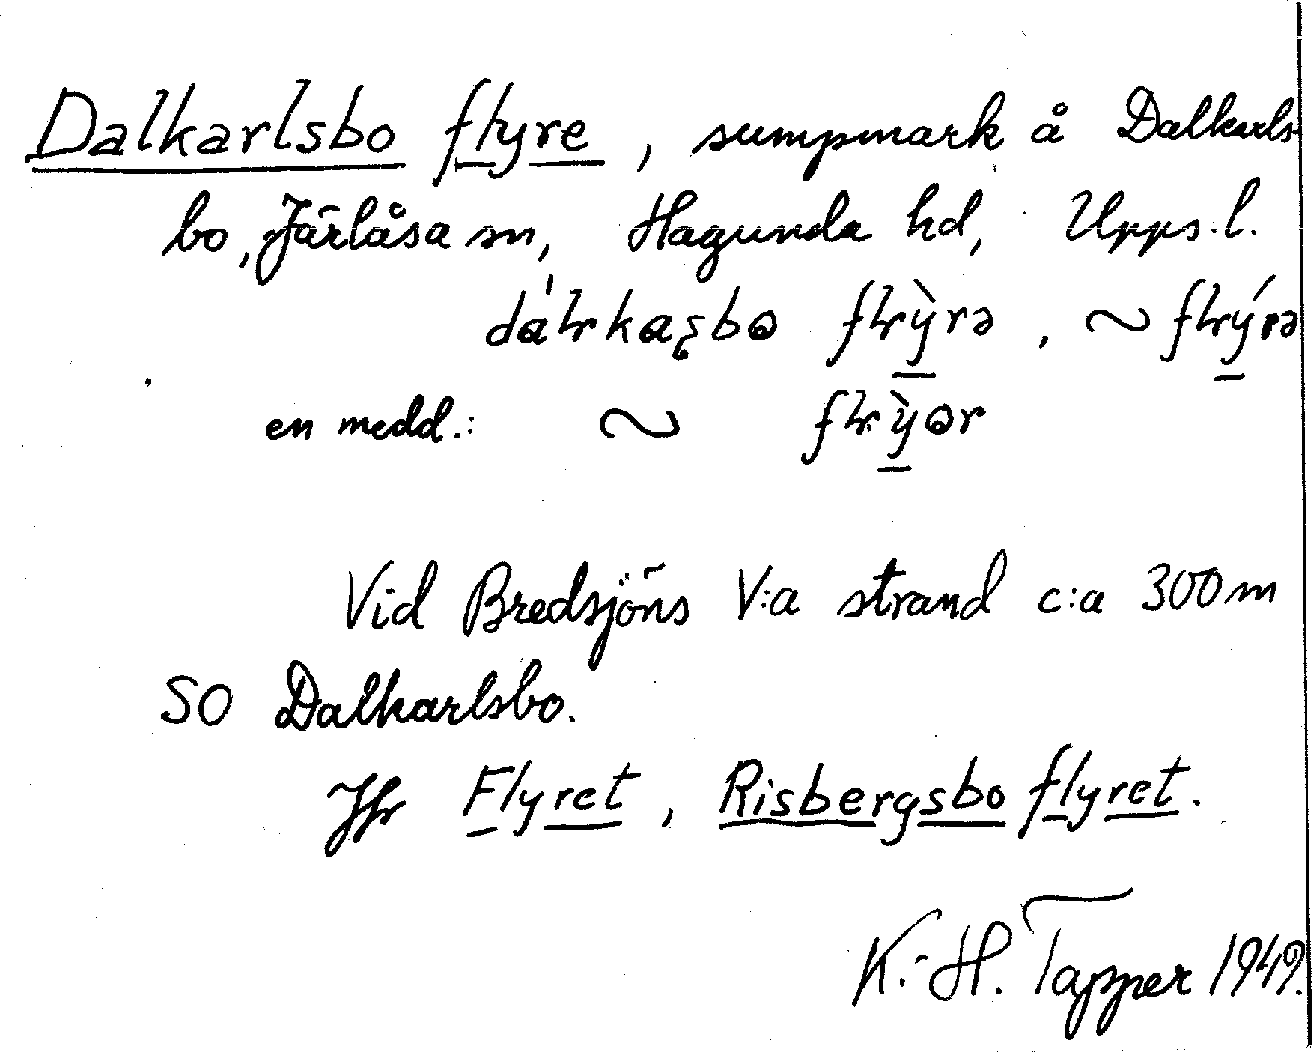 Dalkarlsbo flyre, sumpmark å Dalkarls-
bo, Järlåsa sn, Hagunda hd, Upps. l.
flỳrə, ~ flýrə
en medd.: ~
Vid Bredsjöns V:a strand c:a 300 m
SO Dalkarlsbo.
Jfr Flyret, Risbergsbo flyret.
K.-H. Tapper 1949.